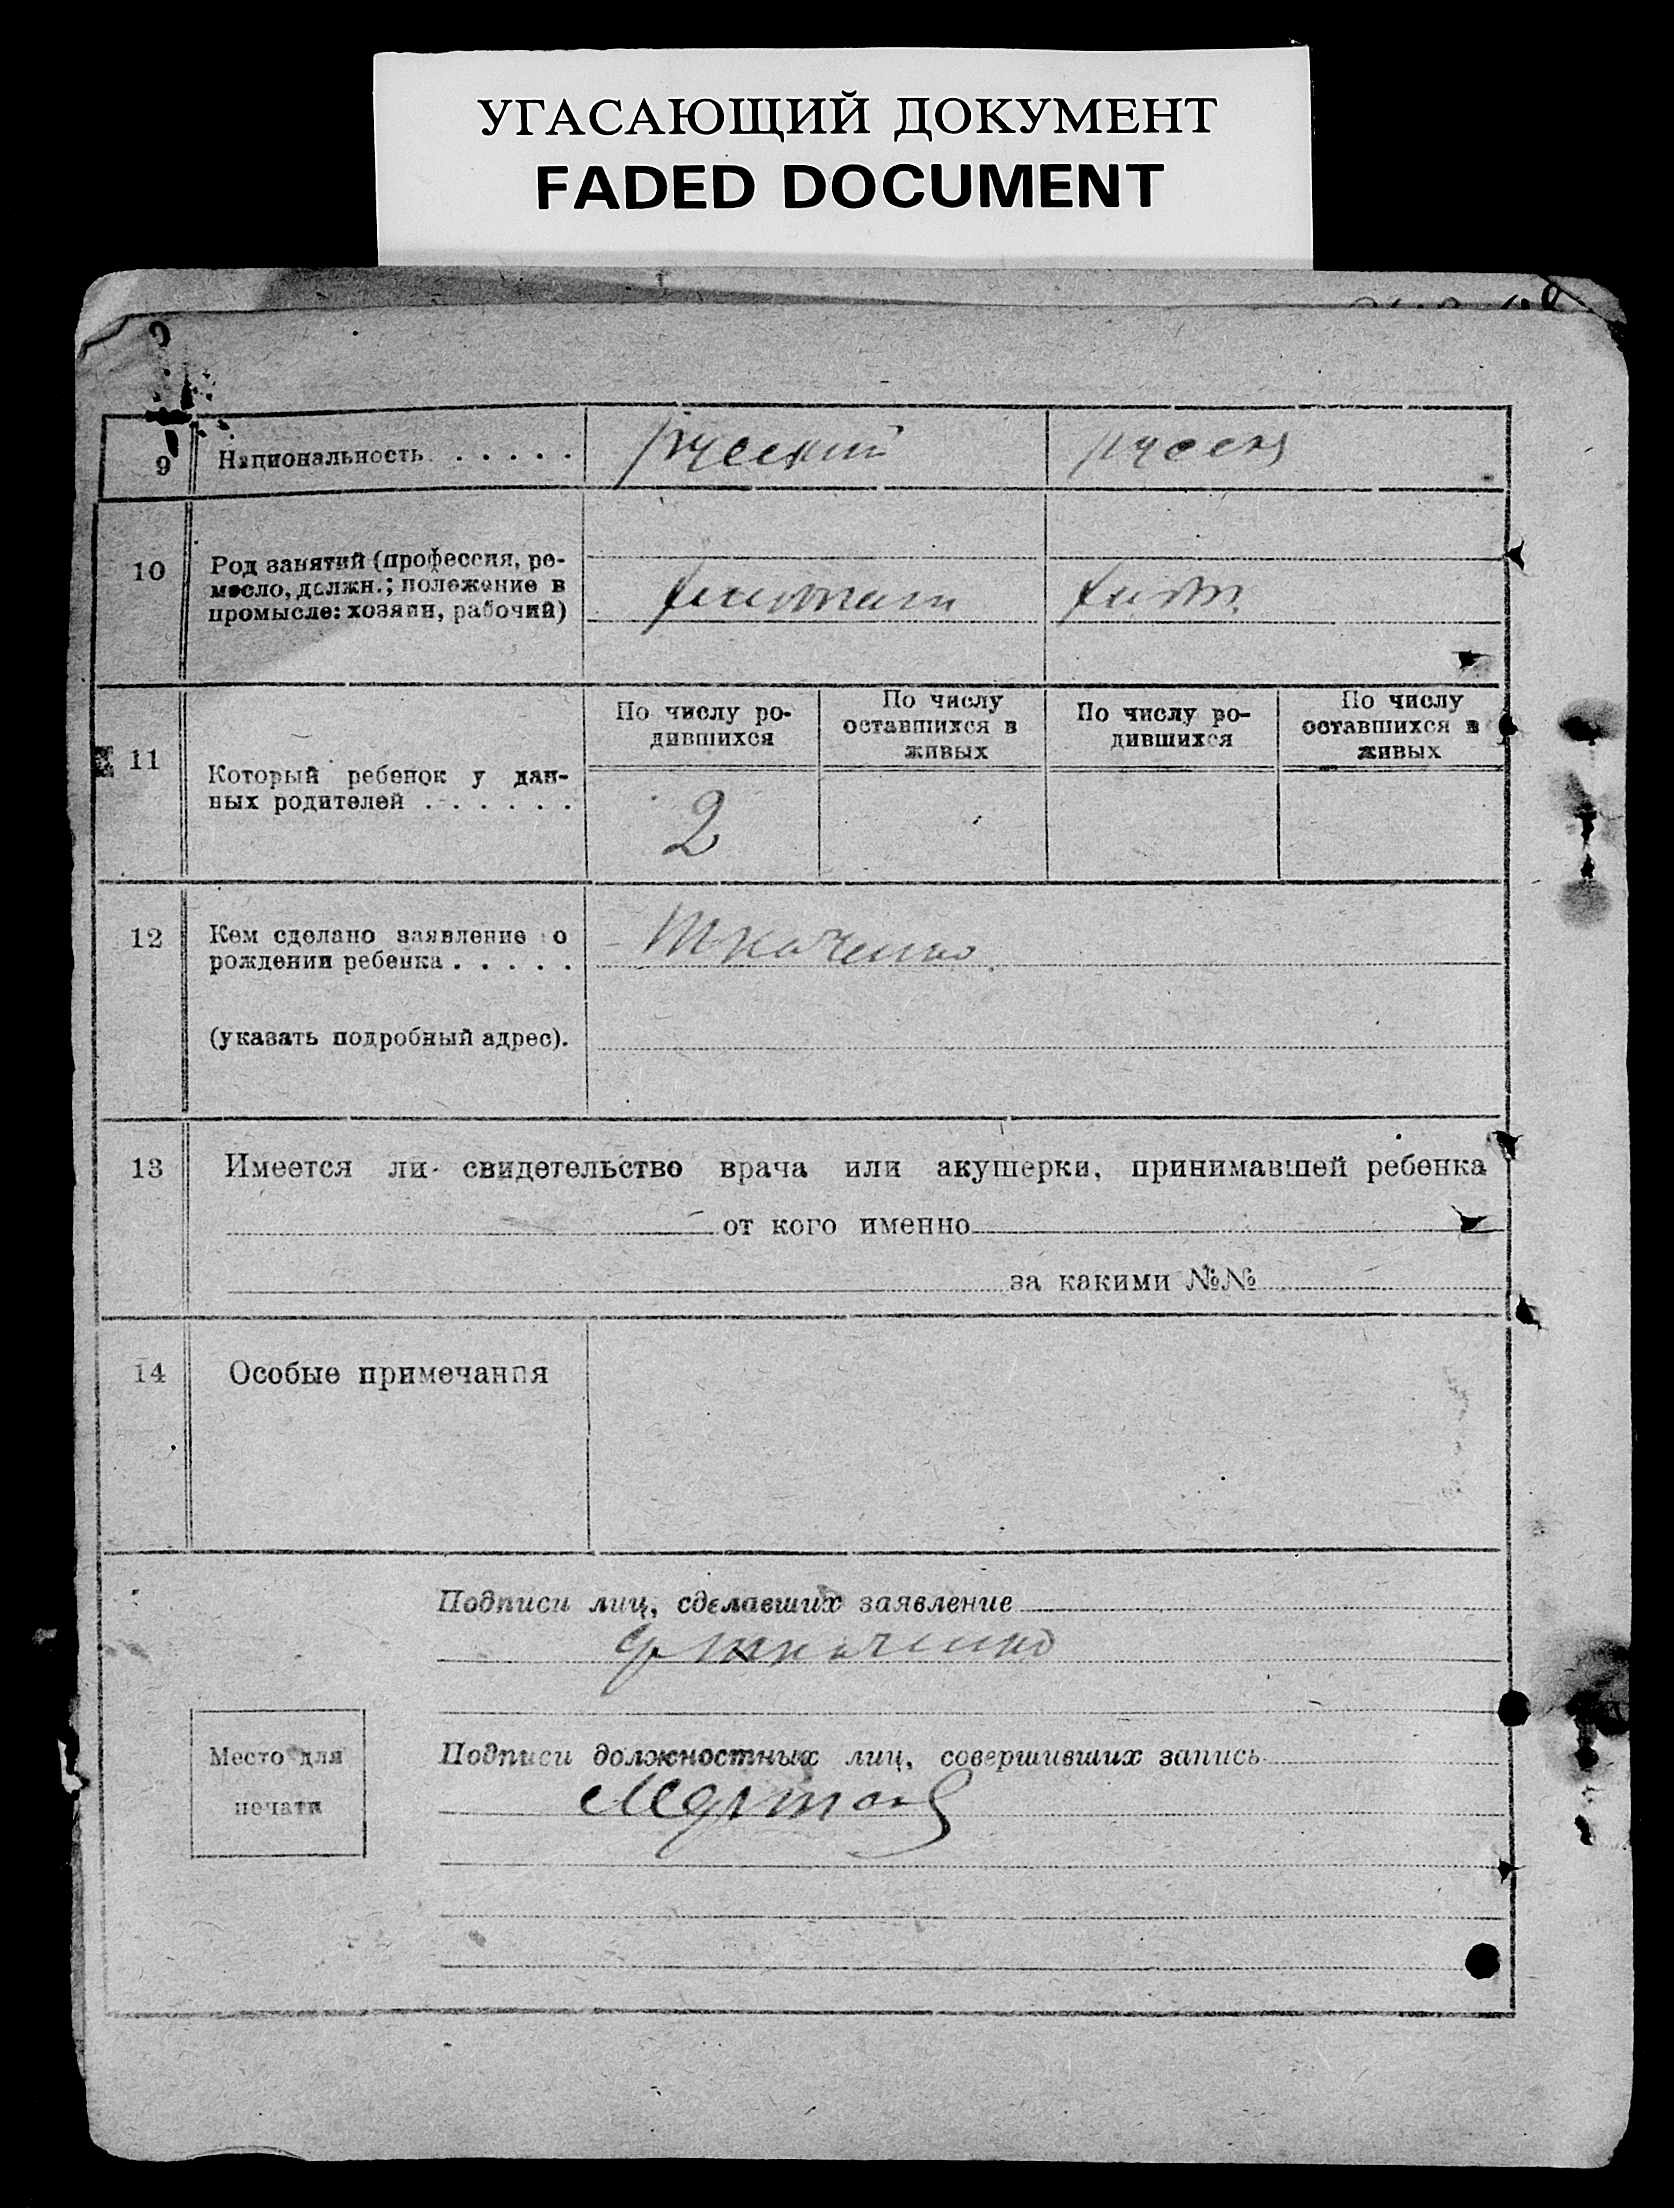 УГАСАЮЩИЙ ДОКУМЕНТ
FADED DOCUMENT
9 Национальность . . . . . русский русск
10 Род занятий (профессия, ре-
месло, должн.; положение в
промысле: хозяин, рабочий)
11 Который ребенок у дан-
ных родителей . . . . . .
По числу ро-
дившихся
По числу
оставшихся в
живых
По числу ро-
дившихся
По числу
оставшихся в
живых
2
12 Кем сделано заявление о
рождении ребенка . . . . .
Ткаченко
(указать подробный адрес).
13 Имеется ли свидетельство врача или акушерки, принимавшей ребенка
от кого именно
за какими №№
14 Особые примечания
Подписи лиц, сделавших заявление
Ткаченко
Место для
печати
Подписи должностных лиц, совершивших запись